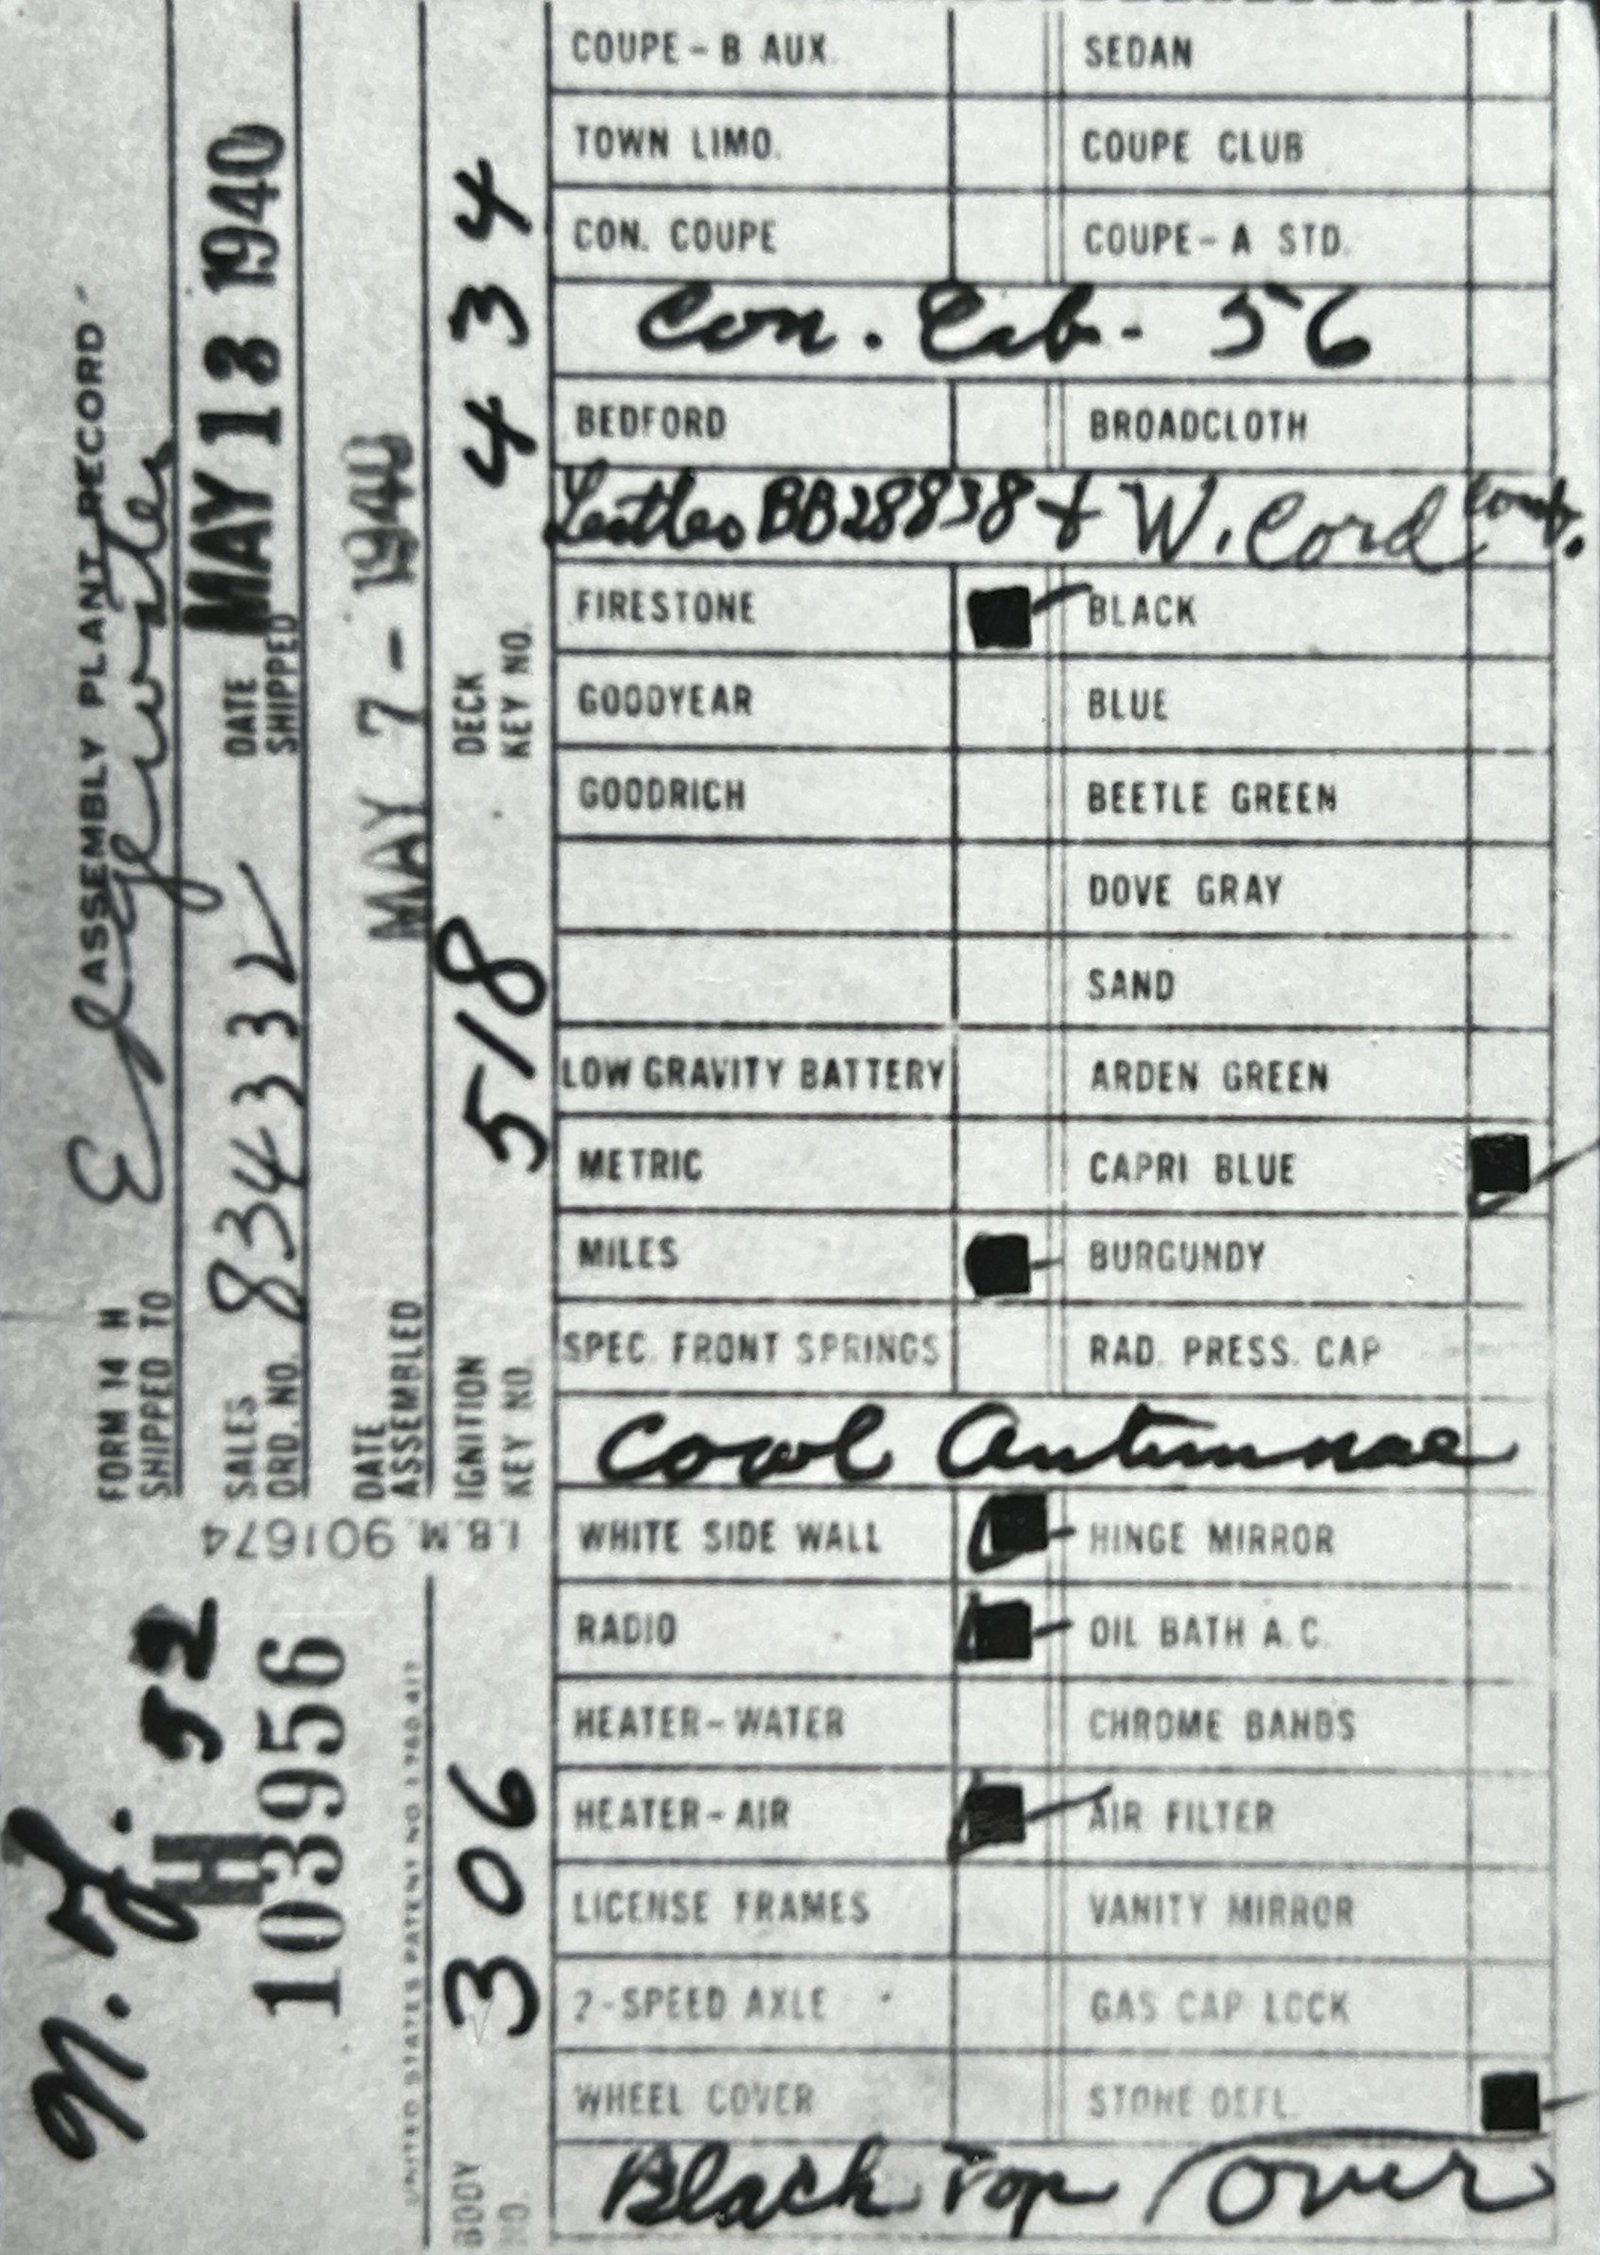 ASSEMBLY PLANT RECORD
FORM 14 H
SHIPPED TO Edgewater
SALES ORD. NO. 834332
DATE SHIPPED MAY 13 1940
DATE ASSEMBLED MAY 7 - 1940
IGNITION KEY NO. 518
DECK KEY NO. 4434
N.Y. 52
H
103956
I.B.M. 901674
BODY NO. 306
COUPE - B AUX. SEDAN
TOWN LIMO. COUPE CLUB
CON. COUPE COUPE - A STD.
Con. Cab. - 56
BEDFORD BROADCLOTH
Leather BB28838 & W. Cord Comb.
FIRESTONE BLACK
GOODYEAR BLUE
GOODRICH BEETLE GREEN
DOVE GRAY
SAND
LOW GRAVITY BATTERY ARDEN GREEN
METRIC CAPRI BLUE
MILES BURGUNDY
SPEC. FRONT SPRINGS RAD. PRESS. CAP
Cowl Antennae
WHITE SIDE WALL HINGE MIRROR
RADIO OIL BATH A.C.
HEATER - WATER CHROME BANDS
HEATER - AIR AIR FILTER
LICENSE FRAMES VANITY MIRROR
2 - SPEED AXLE GAS CAP LOCK
WHEEL COVER STONE DEFL.
Black Top Over